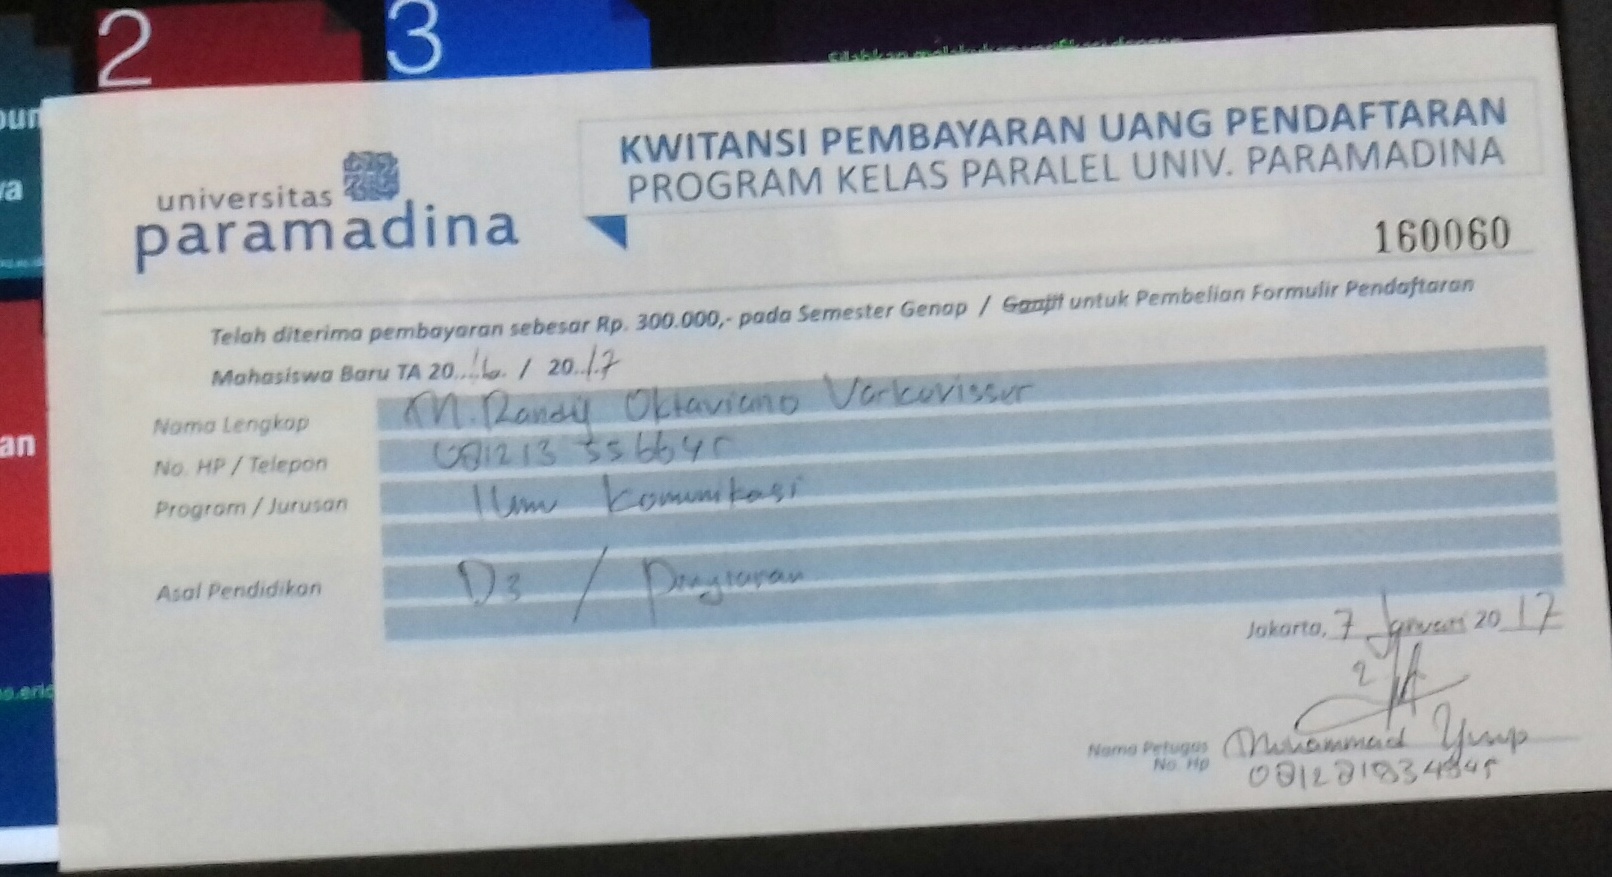 2
3
universitas
paramadina
KWITANSI PEMBAYARAN UANG PENDAFTARAN
PROGRAM KELAS PARALEL UNIV. PARAMADINA
160060
Telah diterima pembayaran sebesar Rp. 300.000,- pada Semester Genap / Ganjil untuk Pembelian Formulir Pendaftaran
Mahasiswa Baru TA 20..16. / 20.17
Nama Lengkap M. Randy Oktaviano Varkovissur
No. HP / Telepon
Program / Jurusan Ilmu Komunikasi
Asal Pendidikan D3 / Penyiaran
Jakarta, 7 Januari 2017
Nama Petugas Muhammad Yusup
No. Hp
an